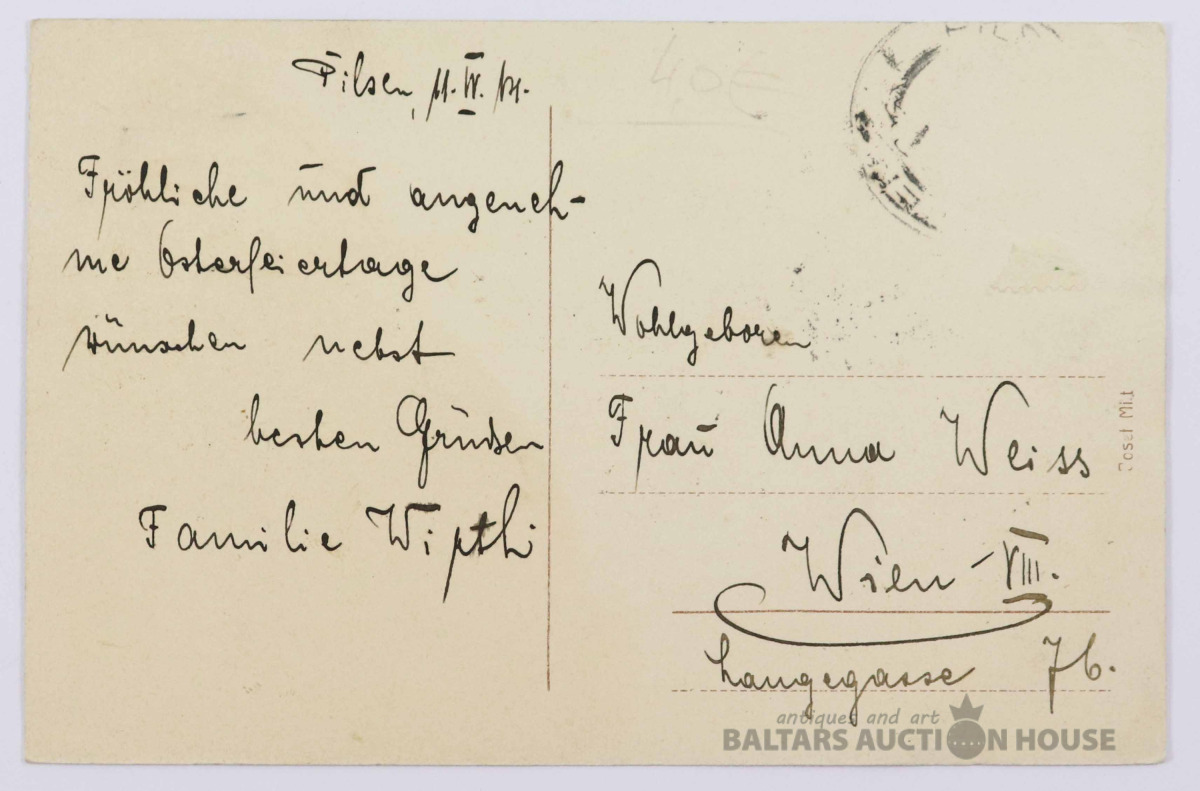 Pilsen, 11. IV. 14.
Fröhliche und angeneh-
me Osterfeiertage
wünschen nebst
besten Grüssen
Familie Wirth
40€
Wohlgeboren
Frau Anna Weiss
Wien - VIII.
Langegasse 76.
Josef Mitt
antiques and art
BALTARS AUCTION HOUSE